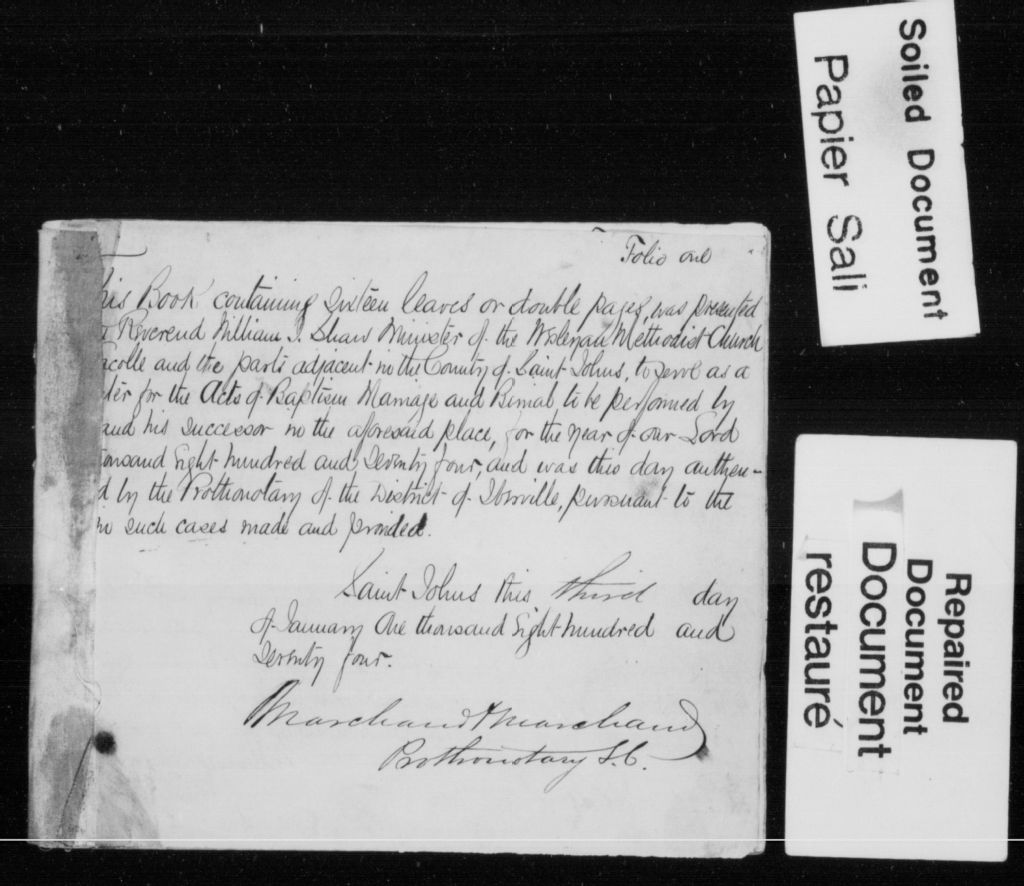 Folio one
his Book containing Sixteen leaves or double pages, was presented
Reverend William I. Shaw Minister of the Wesleyan Methodist Church
acolle and the parts adjacent in the County of Saint Johns, to serve as a
ter for the Acts of Baptism Marriage and Burial to be performed by
and his successor in the aforesaid place, for the year of our Lord
ousand Eight hundred and Seventy four, and was this day authen-
d by the Prothonotary of the District of Iberville, pursuant to the
in such cases made and provided.
Saint Johns this third day
of January One thousand Eight hundred and
Seventy four.
Marchand & Marchand
Prothonotary S.C.
Soiled Document
Papier Sali
Repaired
Document
Document
restauré